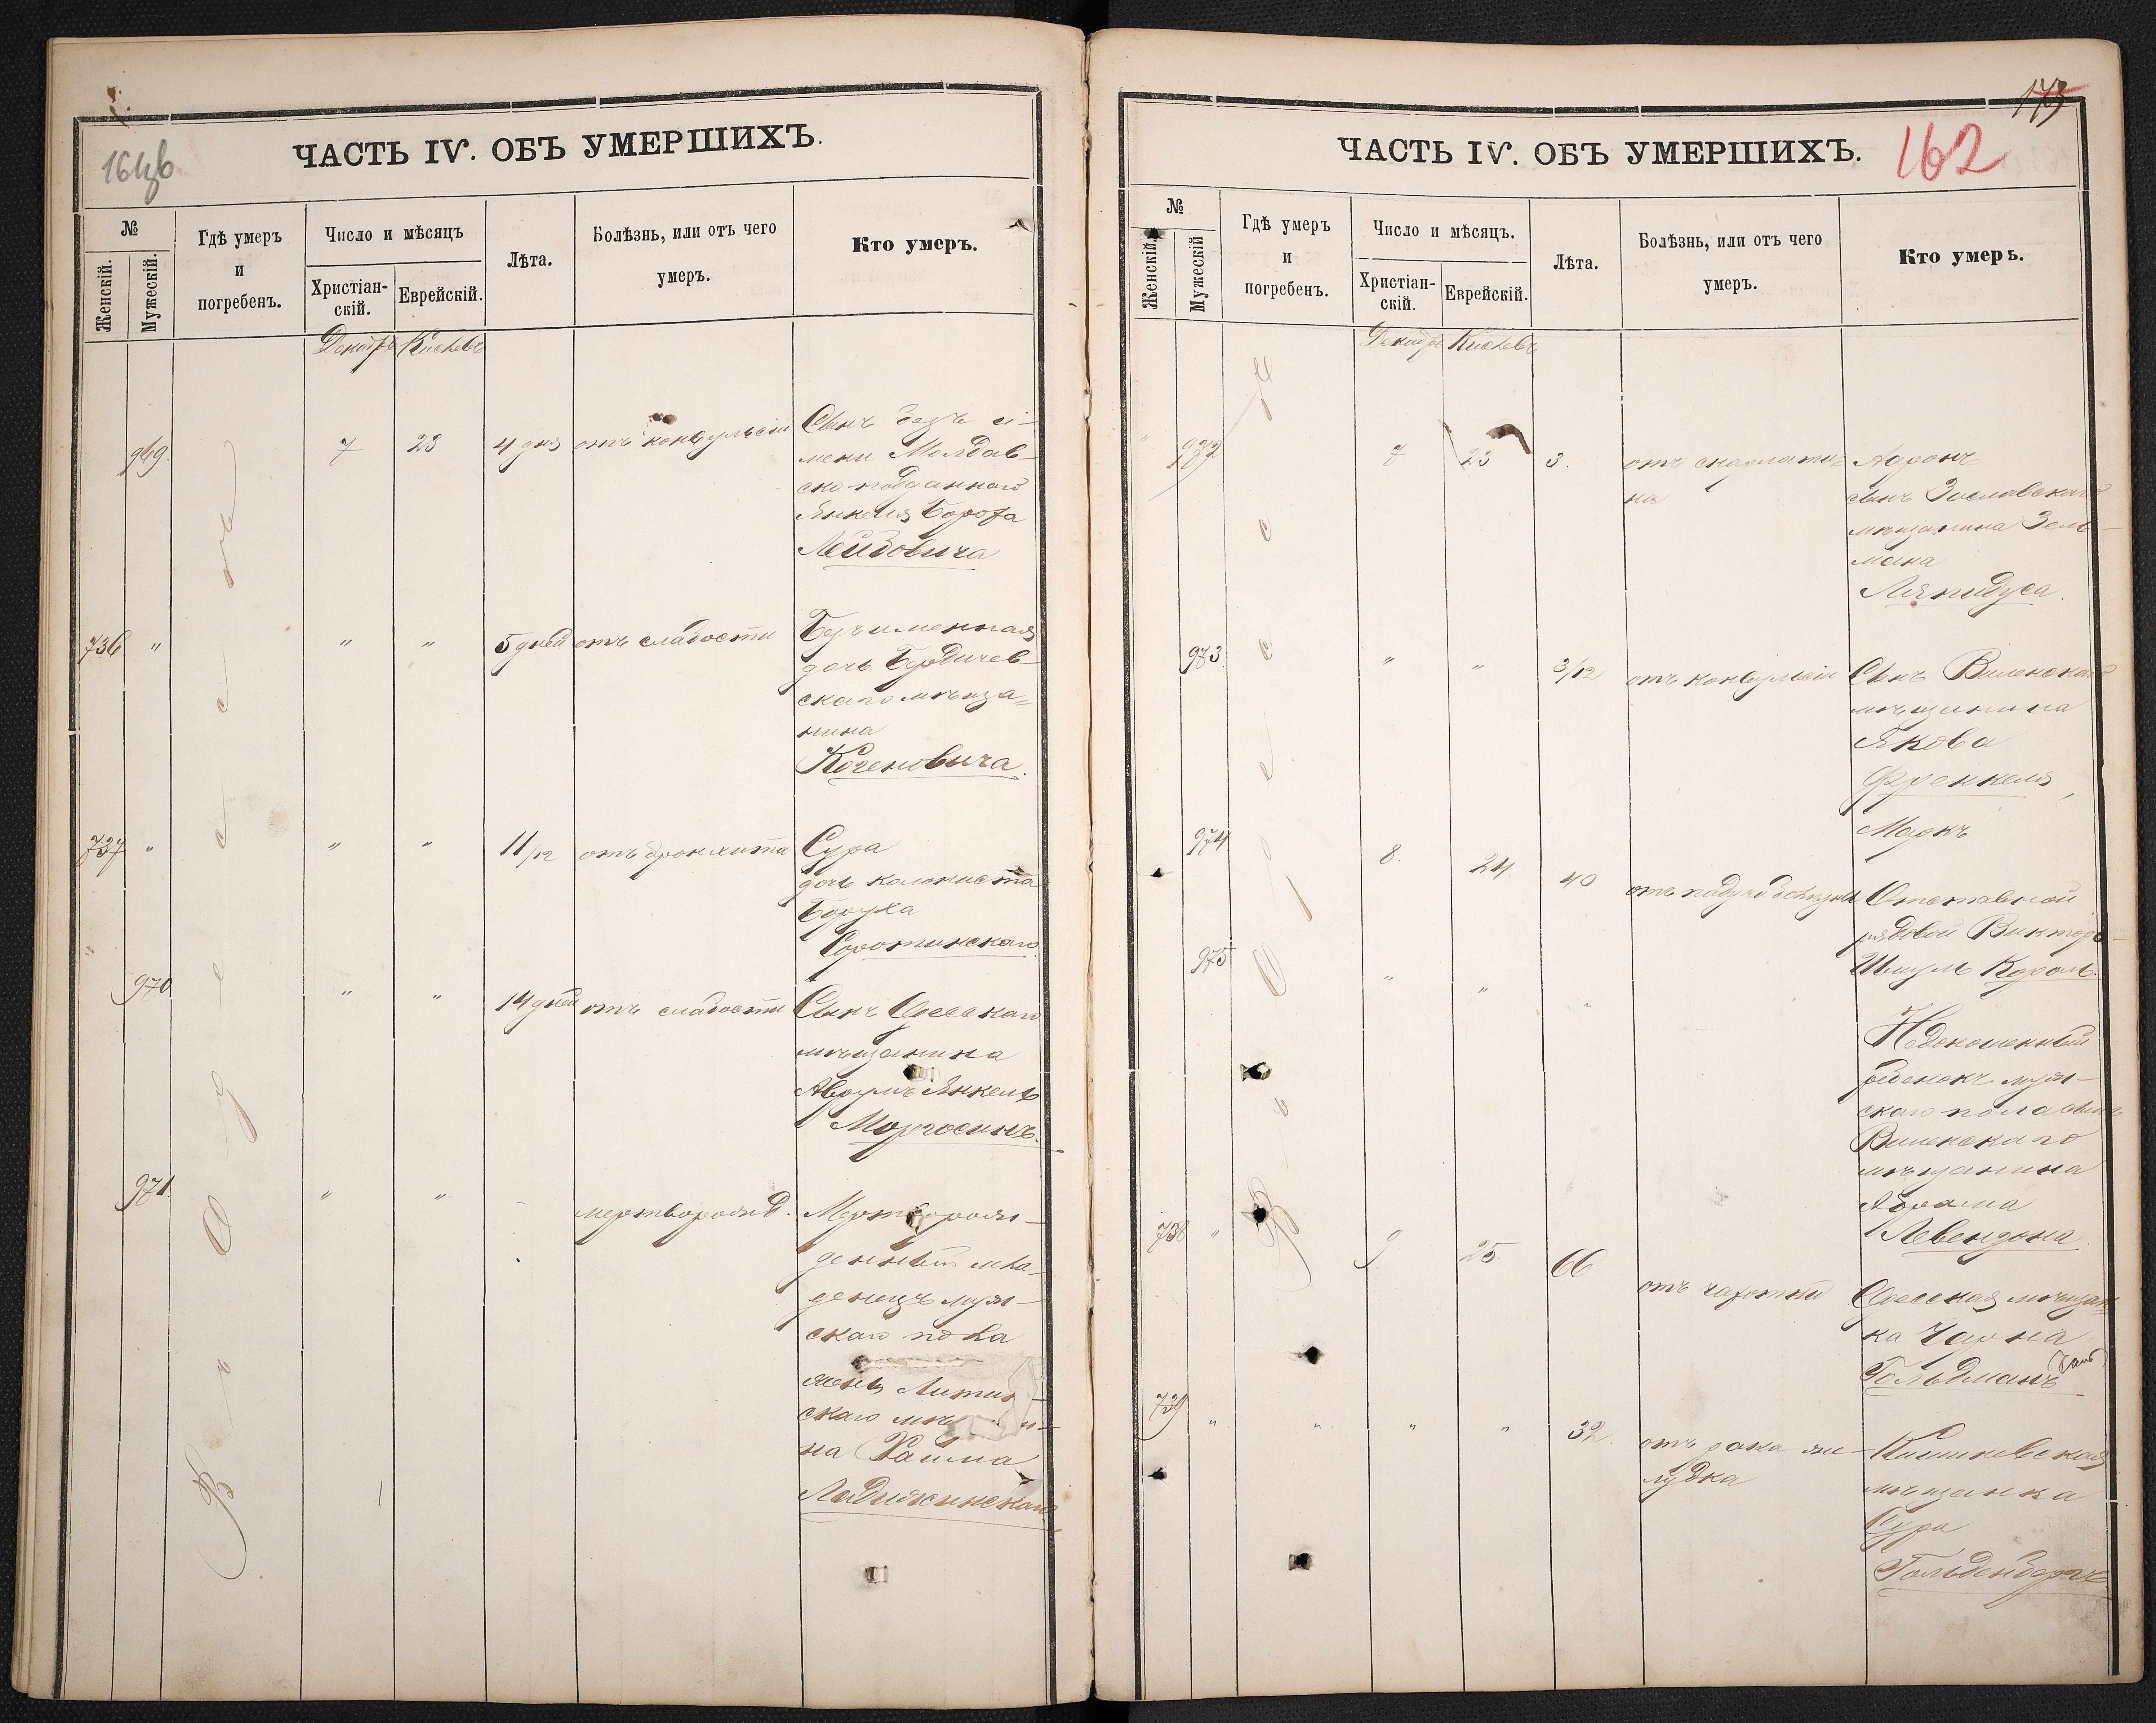 ЧАСТЬ IV. ОБЪ УМЕРШИХЪ.
№
Женскій.
Мужескій.
Гдѣ умеръ
и
погребенъ.
Число и мѣсяцъ
Христіан-
скій.
Еврейскій.
Лѣта.
Болѣзнь, или отъ чего
умеръ.
Кто умеръ.
Декабрь Кислевъ
969. 7 23 4 дня отъ конвульсіи Сынъ безъ и-
мени Молдав-
ско подданнаго
Янкеля Бороха
Лейбовича
736 " " " 5 дней отъ слабости Безъименная
дочь Бердичев-
скаго мѣща-
нина
Когеновича.
737 " " " 11/12 отъ бронхита Сура
дочь колониста
Боруха
Сиротинскаго
970 " " 14 дней отъ слабости Сынъ Одесскаго
мѣщанина
Аврумъ Янкель
971. " " - мертворожд. Мертворож-
денный мла-
денецъ муж-
скаго пола
скаго
на Хаима
Ладиженскаго
В ъ О д е с с ѣ
ЧАСТЬ IV. ОБЪ УМЕРШИХЪ.
162
173
№
Женскій.
Мужескій
Гдѣ умеръ
и
погребенъ.
Число и мѣсяцъ.
Христіан-
скій.
Еврейскій.
Лѣта.
Болѣзнь, или отъ чего
умеръ.
Кто умеръ.
Декабрь Кислевъ
972 7 23 3. отъ скарлати- Ааронъ
на сынъ Заславскаго
мѣщанина Зель-
мана
Ляпидуса.
973. " " 3/12 отъ конвульсіи Сынъ Виленскаго
мѣщанина
Якова
Френкеля
974 8. 24 40 Маркъ
Отставной
рядовой Викторъ
Шмуль Король.
975 " " "
Недоношенный
ребенокъ муж-
скаго пола сынъ
Виленскаго
мѣщанина
Абрама
Левензона.
738 " 9 25 66 отъ чахотки Одесская мѣщан-
ка Чарна
Гольдманъ
739 " " " " 32. отъ рака же- Кишиневская
лудка мѣщанка
Сура
Гольденбергъ
В ъ О д е с с ѣ